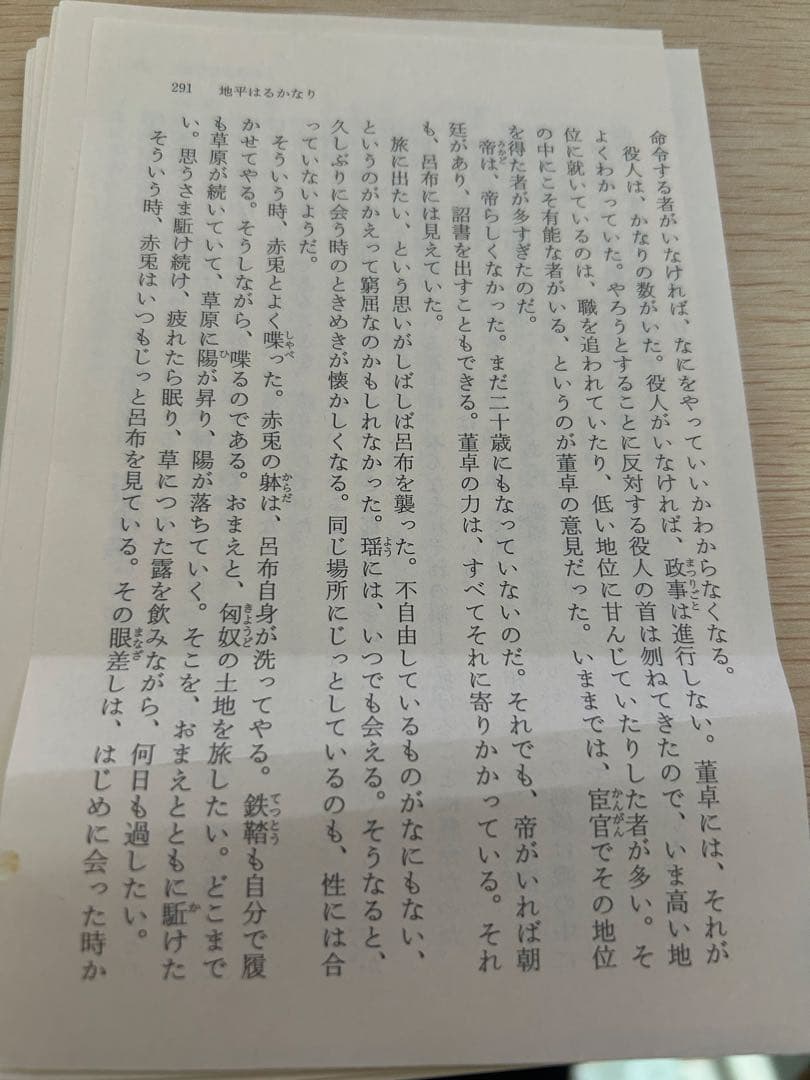 291 地平はるかなり
命令する者がいなければ、なにをやっていいかわからなくなる。
役人は、かなりの数がいた。役人がいなければ、政事は進行しない。董卓には、それが
よくわかっていた。やろうとすることに反対する役人の首は刎ねてきたので、いま高い地
位に就いているのは、職を追われていたり、低い地位に甘んじていたりした者が多い。そ
の中にこそ有能な者がいる、というのが董卓の意見だった。いままでは、宦官でその地位
を得た者が多すぎたのだ。
帝は、帝らしくなかった。まだ二十歳にもなっていないのだ。それでも、帝がいれば朝
廷があり、詔書を出すこともできる。董卓の力は、すべてそれに寄りかかっている。それ
も、呂布には見えていた。
旅に出たい、という思いがしばしば呂布を襲った。不自由しているものがなにもない、
というのがかえって窮屈なのかもしれなかった。瑶には、いつでも会える。そうなると、
久しぶりに会う時のときめきが懐かしくなる。同じ場所にじっとしているのも、性には合
っていないようだ。
そういう時、赤兎とよく喋った。赤兎の躰は、呂布自身が洗ってやる。鉄鞜も自分で履
かせてやる。そうしながら、喋るのである。おまえと、匈奴の土地を旅したい。どこまで
も草原が続いていて、草原に陽が昇り、陽が落ちていく。そこを、おまえとともに駈けた
い。思うさま駈け続け、疲れたら眠り、草についた露を飲みながら、何日も過したい。
そういう時、赤兎はいつもじっと呂布を見ている。その眼差しは、はじめに会った時か